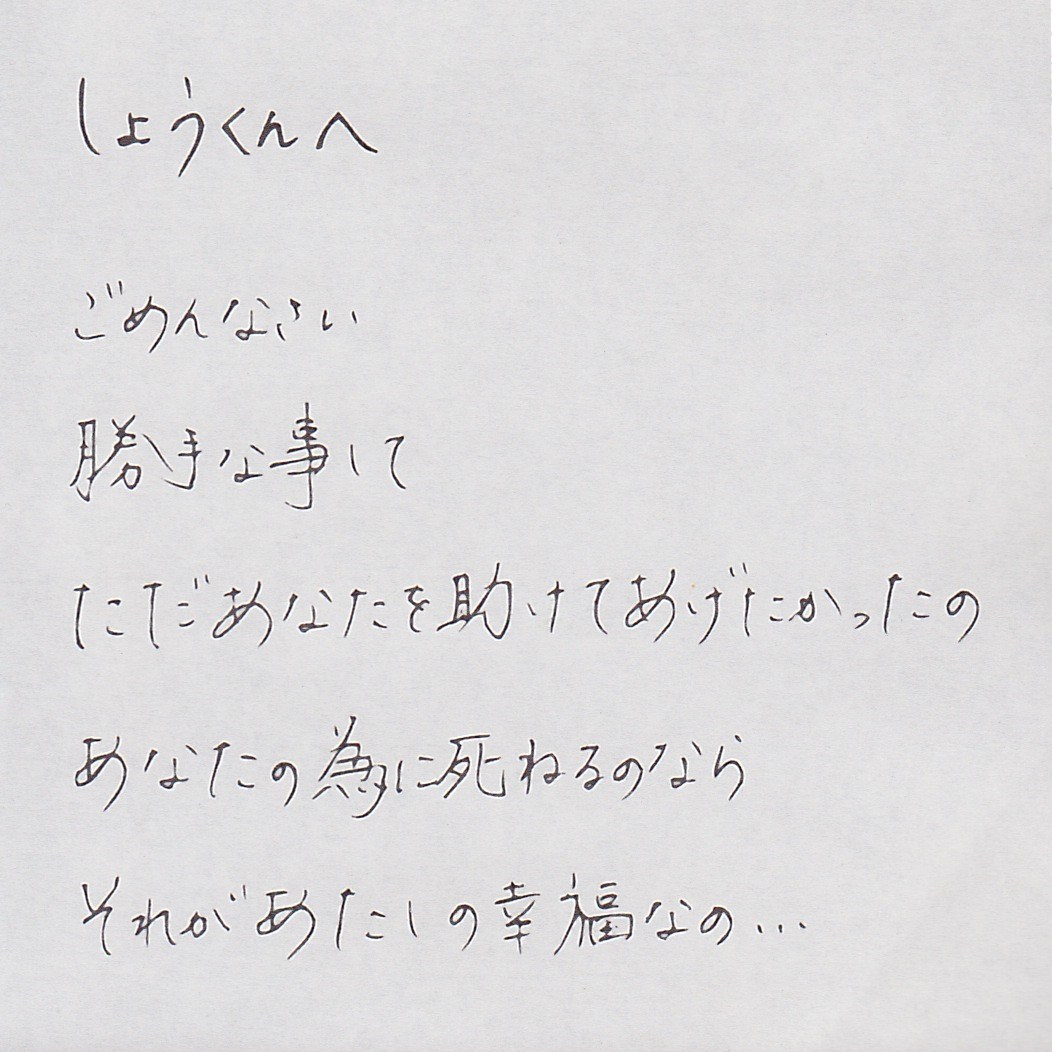 しょうくんへ
ごめんなさい
勝手な事して
ただあなたを助けてあげたかったの
あなたの為に死ねるのなら
それがあたしの幸福なの…